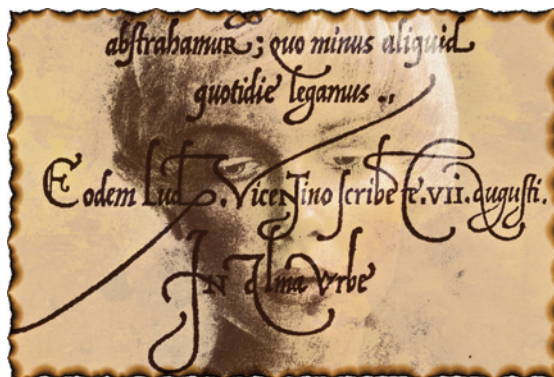 abstrahamur; quo minus aliquid
quotidie legamus..
Eodem Lud. Vicentino scribente.VII.augusti.
In Alma Urbe